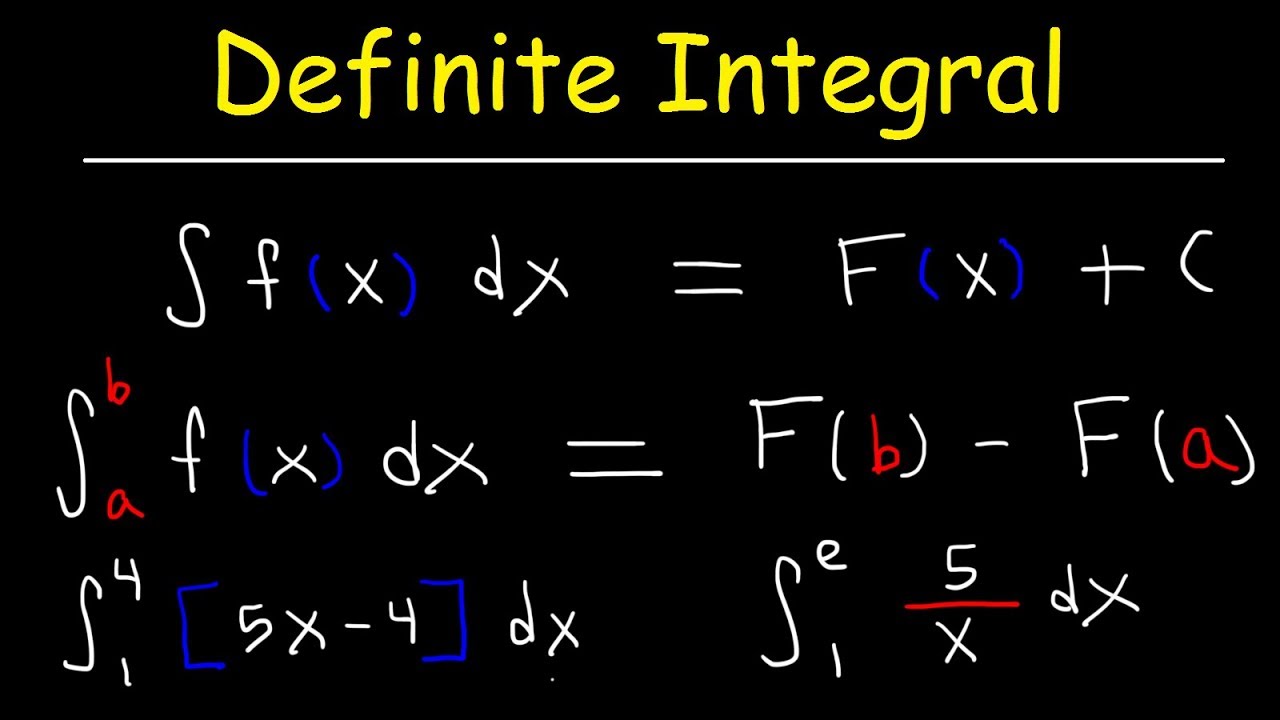 Definite Integral
∫ f(x) dx = F(x) + C
∫_a^b f(x) dx = F(b) - F(a)
∫_1^4 [5x-4] dx ∫_1^e 5/x dx